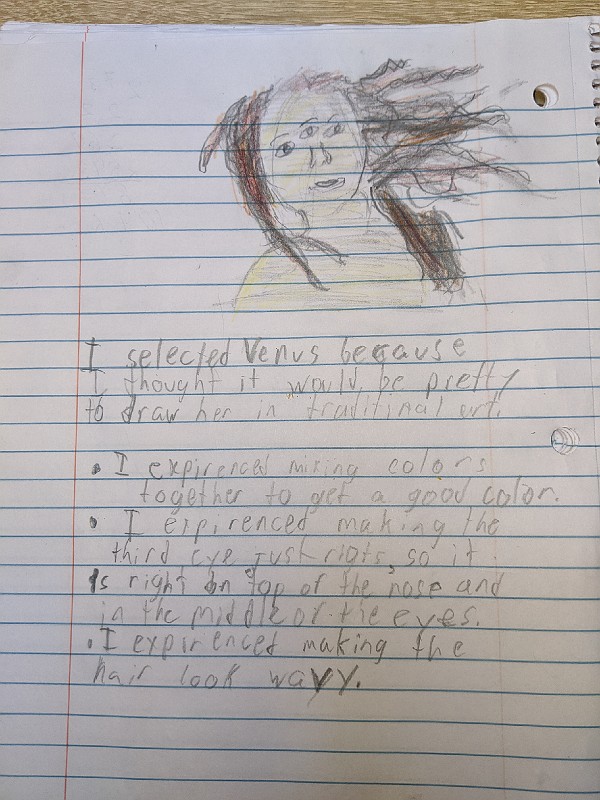 I selected Venus because
I thought it would be pretty
to draw her in traditinal art.
• I expirenced mixing colors
together to get a good color.
• I expirenced making the
third eye just
so it
is right on top of the nose and
in the middle of the eyes.
• I expirenced making the
hair look wavy.